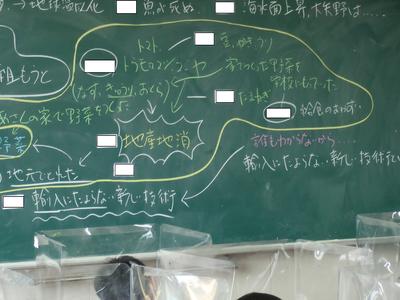 →地球温暖化 魚が死ぬ 海水面上昇、大矢野は.....
トマト 豆、かき、うり
トウモロコシ
家でつくった野菜を
学校にもって
(なす、きゅうり、おくら)
もうと
たまねぎ
さんの家で野菜をつくった
給食のおかず
野菜
地産地消
誰もわからないから.....
地元でとれた
輸入にたよらない.新しい技術
輸入にたよらない..新しい技術